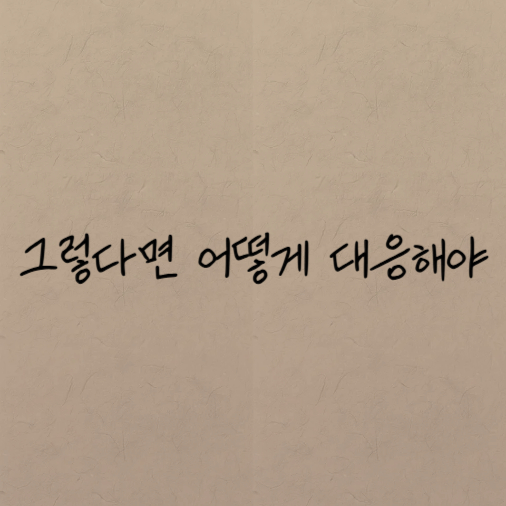 그렇다면 어떻게 대응해야